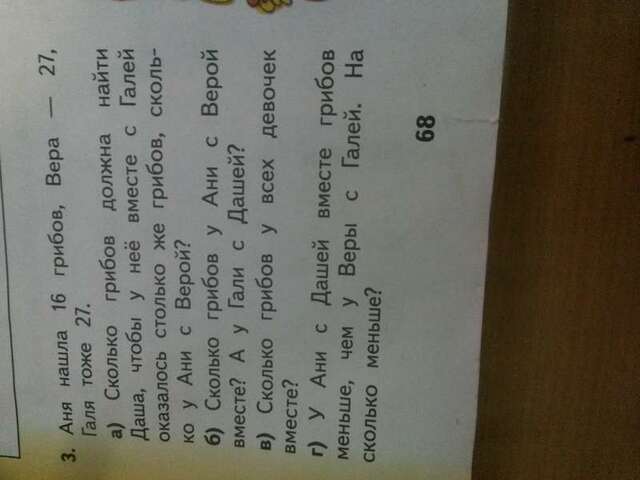 3. Аня нашла 16 грибов, Вера — 27,
Галя тоже 27.
а) Сколько грибов должна найти
Даша, чтобы у неё вместе с Галей
оказалось столько же грибов, сколь-
ко у Ани с Верой?
б) Сколько грибов у Ани с Верой
вместе? А у Гали с Дашей?
в) Сколько грибов у всех девочек
вместе?
г) У Ани с Дашей вместе грибов
меньше, чем у Веры с Галей. На
сколько меньше?
68